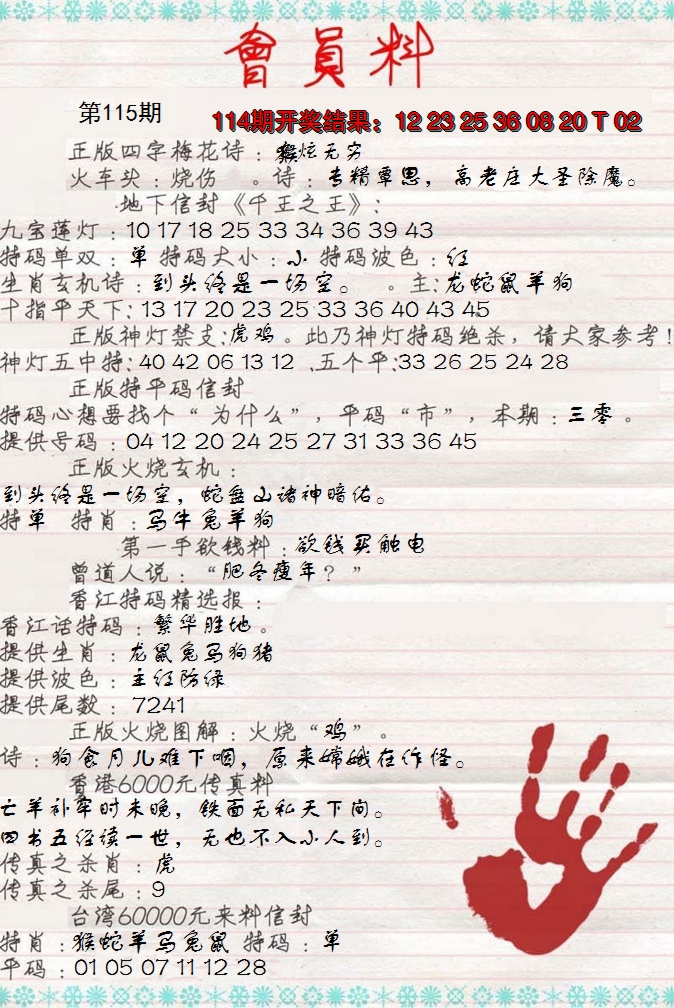 會員料
第115期
114期开奖结果：12 23 25 36 08 20 T 02
正版四字梅花诗：猴炫无穷
火车头：烧伤 。诗：专精覃思，高老庄大圣除魔。
地下信封《千王之王》：
九宝莲灯：10 17 18 25 33 34 36 39 43
特码单双：单 特码大小：小 特码波色：红
生肖玄机诗：到头终是一场空。 。主：龙蛇鼠羊狗
十指平天下：13 17 20 23 25 33 36 40 43 45
正版神灯禁支：虎鸡。此乃神灯特码绝杀，请大家参考！
神灯五中特：40 42 06 13 12 、五个平：33 26 25 24 28
正版特平码信封
特码心想要找个“为什么”，平码“市”，本期：三零。
提供号码：04 12 20 24 25 27 31 33 36 45
正版火烧玄机：
到头终是一场空，蛇盘山诸神暗佑。
特单 特肖：马牛兔羊狗
第一手欲钱料：欲钱买触电
曾道人说：“肥冬瘦年？”
香江特码精选报：
香江话特码：繁华胜地。
提供生肖：龙鼠兔马狗猪
提供波色：主红防绿
提供尾数：7241
正版火烧图解：火烧“鸡”。
诗：狗食月儿难下咽，原来嫦娥在作怪。
香港6000元传真料
亡羊补牢时未晚，铁面无私天下间。
四书五经续一世，无也不入小人到。
传真之杀肖：虎
传真之杀尾：9
台湾60000元来料信封
特肖：猴蛇羊马兔鼠 特码：单
平码：01 05 07 11 12 28